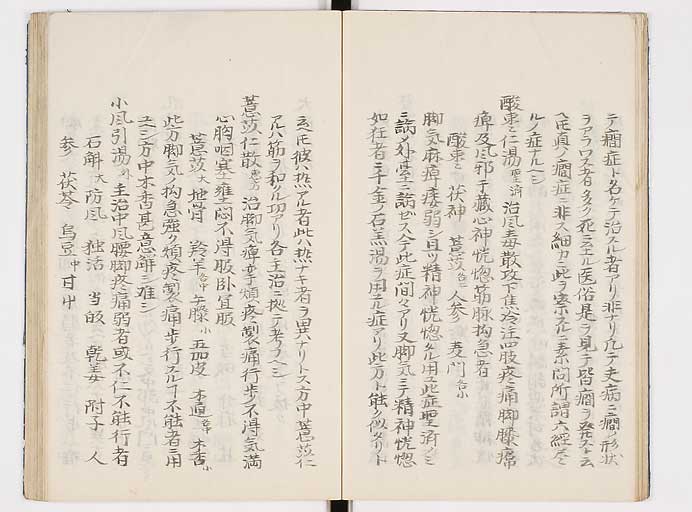 テ癇症ト名ケテ治スル者アリ非ナリ凡テ大病ニ癇ノ形状
ヲアラワス者多ク死ニ至ル医俗是ヲ見テ皆癇ヲ発スト云
ヘ𪜈真ノ癇症ニ非ス細カニ此ヲ察スルニ素問所謂六経
ルノ症ナルヘシ
酸棗仁湯聖済 治風毒散攻下焦冷注四肢疼痛脚膝
痺及風邪干蔵心神恍惚筋脉拘急者
酸棗仁 茯神 薏苡 人参 麦門
脚気麻痺痿弱シ且ツ精神恍惚タル用ユ此症聖済ノミ
ニ論ノ外臺ニ論ゼス今此症間々アリ又脚気ニテ精神恍惚
如狂者ニ千金ノ石羔湯ヲ用ル症アリ此方ト能ク似タリト
云ヘ𪜈彼ハ熱アル者此ハ熱ナキ者ヲ異ハケリトス方中薏苡仁
アルハ筋ヲ和スル功アリ各主治ニ拠テ考フヘシ
薏苡仁散 治脚気痺攣煩疼掣痛行歩不得気満
心胸咽塞壅悶不得服卧宜服
薏苡大 地骨 羚羊 午膝小 五加皮 木通 木香小
此方脚気ノ拘急強ク煩疼掣痛歩行スル事不能者ニ用
ユヘシ方中木香甚意解シ難シ
小風引湯外 主治中風腰脚疼痛弱者或不仁不能行者
石斛大 防風 独活 当皈 乾姜 附子 人
参 茯苓 烏豆中 甘中